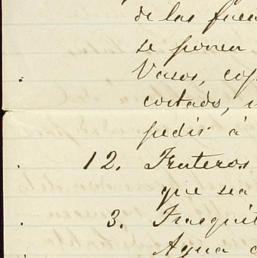 de las fue
se ponen
Vasos, cop
cortado, 
pedir á
12. Fruteros
que sea
3. Frasquit
Agua